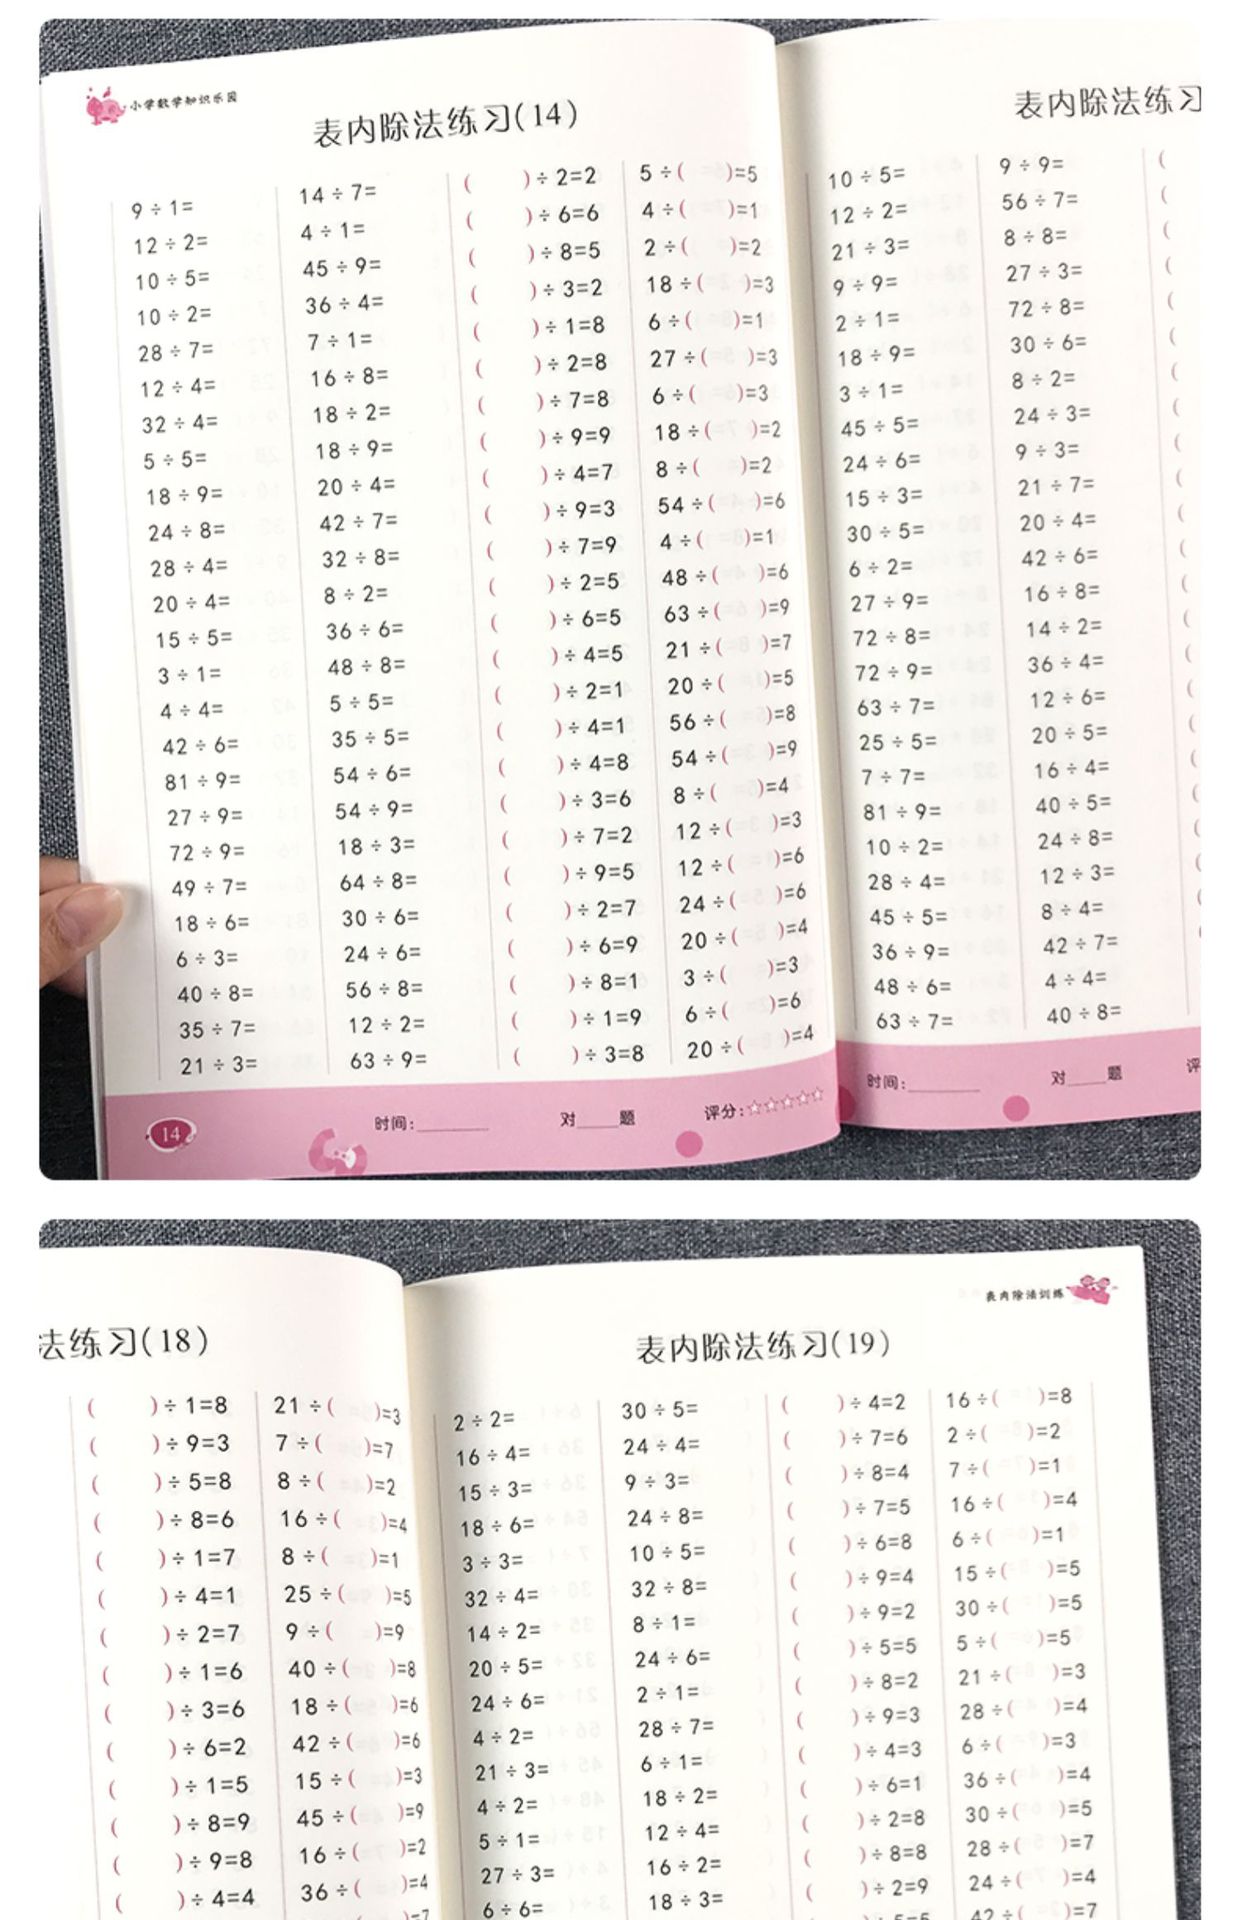 小学数学知识乐园
表内除法练习(14)
9÷1=
12÷2=
10÷5=
10÷2=
28÷7=
12÷4=
32÷4=
5÷5=
18÷9=
24÷8=
28÷4=
20÷4=
15÷5=
3÷1=
4÷4=
42÷6=
81÷9=
27÷9=
72÷9=
49÷7=
18÷6=
6÷3=
40÷8=
35÷7=
21÷3=
14÷7=
4÷1=
45÷9=
36÷4=
7÷1=
16÷8=
18÷2=
18÷9=
20÷4=
42÷7=
32÷8=
8÷2=
36÷6=
48÷8=
5÷5=
35÷5=
54÷6=
54÷9=
18÷3=
64÷8=
30÷6=
24÷6=
56÷8=
12÷2=
63÷9=
( )÷2=2
( )÷6=6
( )÷8=5
( )÷3=2
( )÷1=8
( )÷2=8
( )÷7=8
( )÷9=9
( )÷4=7
( )÷9=3
( )÷7=9
( )÷2=5
( )÷6=5
( )÷4=5
( )÷2=1
( )÷4=1
( )÷4=8
( )÷3=6
( )÷7=2
( )÷9=5
( )÷2=7
( )÷6=9
( )÷8=1
( )÷1=9
( )÷3=8
5÷( )=5
4÷( )=1
2÷( )=2
18÷( )=3
6÷( )=1
27÷( )=3
6÷( )=3
18÷( )=2
8÷( )=2
54÷( )=6
4÷( )=1
48÷( )=6
63÷( )=9
21÷( )=7
20÷( )=5
56÷( )=8
54÷( )=9
8÷( )=4
12÷( )=3
12÷( )=6
24÷( )=6
20÷( )=4
3÷( )=3
6÷( )=6
20÷( )=4
14
时间:______
对___题
评分:☆☆☆☆☆
表内除法练习
10÷5=
12÷2=
21÷3=
9÷9=
2÷1=
18÷9=
3÷1=
45÷5=
24÷6=
15÷3=
30÷5=
6÷2=
27÷9=
72÷8=
72÷9=
63÷7=
25÷5=
7÷7=
81÷9=
10÷2=
28÷4=
45÷5=
36÷9=
48÷6=
63÷7=
9÷9=
56÷7=
8÷8=
27÷3=
72÷8=
30÷6=
8÷2=
24÷3=
9÷3=
21÷7=
20÷4=
42÷6=
16÷8=
14÷2=
36÷4=
12÷6=
20÷5=
16÷4=
40÷5=
24÷8=
12÷3=
8÷4=
42÷7=
4÷4=
40÷8=
时间:______
对___题
评
法练习(18)
( )÷1=8
( )÷9=3
( )÷5=8
( )÷8=6
( )÷1=7
( )÷4=1
( )÷2=7
( )÷1=6
( )÷3=6
( )÷6=2
( )÷1=5
( )÷8=9
( )÷9=8
( )÷4=4
21÷( )=3
7÷( )=7
8÷( )=2
16÷( )=4
8÷( )=1
25÷( )=5
9÷( )=9
40÷( )=8
18÷( )=6
42÷( )=6
15÷( )=3
45÷( )=9
16÷( )=2
36÷( )=4
)=7
表内除法训练
表内除法练习(19)
2÷2=
16÷4=
15÷3=
18÷6=
3÷3=
32÷4=
14÷2=
20÷5=
24÷6=
4÷2=
21÷3=
4÷2=
5÷1=
27÷3=
6÷6=
30÷5=
24÷4=
9÷3=
24÷8=
10÷5=
32÷8=
8÷1=
24÷6=
2÷1=
28÷7=
6÷1=
18÷2=
12÷4=
16÷2=
18÷3=
( )÷4=2
( )÷7=6
( )÷8=4
( )÷7=5
( )÷6=8
( )÷9=4
( )÷9=2
( )÷5=5
( )÷8=2
( )÷9=3
( )÷4=3
( )÷6=1
( )÷2=8
( )÷8=8
( )÷2=9
)÷5=5
16÷( )=8
2÷( )=2
7÷( )=1
16÷( )=4
6÷( )=1
15÷( )=5
30÷( )=5
5÷( )=5
21÷( )=3
28÷( )=4
6÷( )=3
36÷( )=4
30÷( )=5
28÷( )=7
24÷( )=4
42÷( )=7